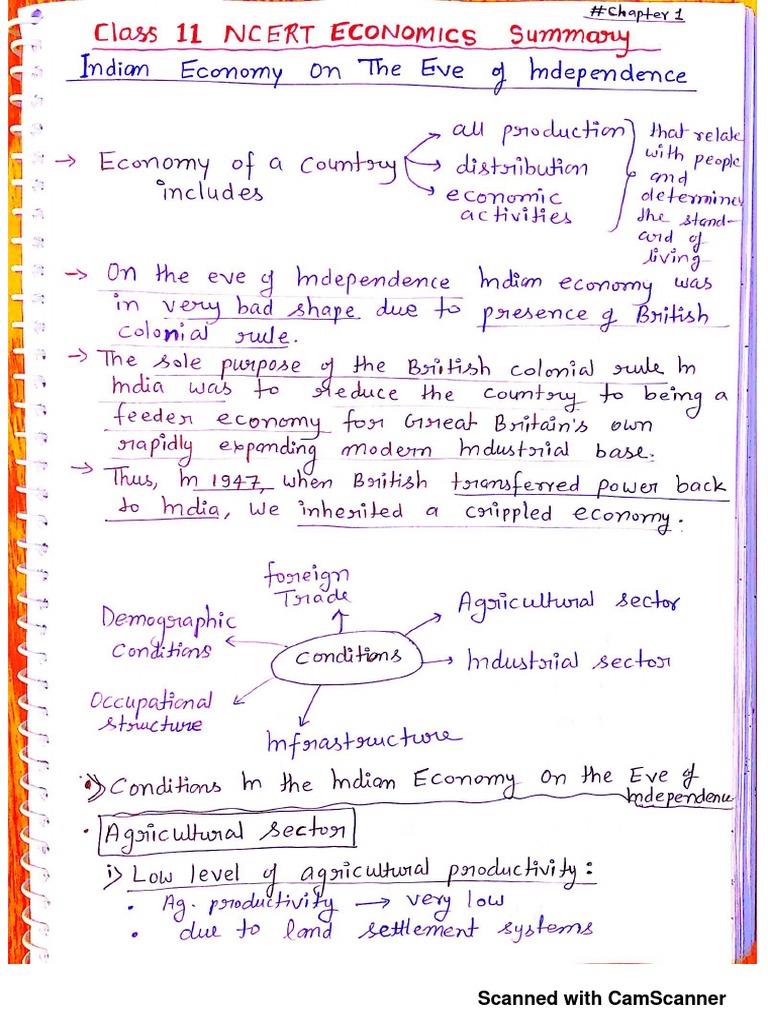 #Chapter 1
Class 11 NCERT ECONOMICS Summary
Indian Economy On The Eve of Independence
→ Economy of a country includes
all production
distribution
economic activities
that relate
with people
and
determines
the stand-
ard of
living
→ On the eve of Independence Indian economy was
in very bad shape due to presence of British
Colonial rule.
→ The sole purpose of the British colonial rule In
India was to reduce the country to being a
feeder economy for Great Britain's own
rapidly expanding modern Industrial base.
→ Thus, In 1947, when British transferred power back
to India, we inherited a crippled economy.
foreign
Trade
Demographic
Conditions
Agricultural sector
Conditions
Industrial sector
Occupational
structure
Infrastructure
Conditions In the Indian Economy On the Eve of
Independence
• Agricultural Sector
i) Low level of agricultural productivity:
• Ag. productivity → very low
• due to land settlement systems
Scanned with CamScanner